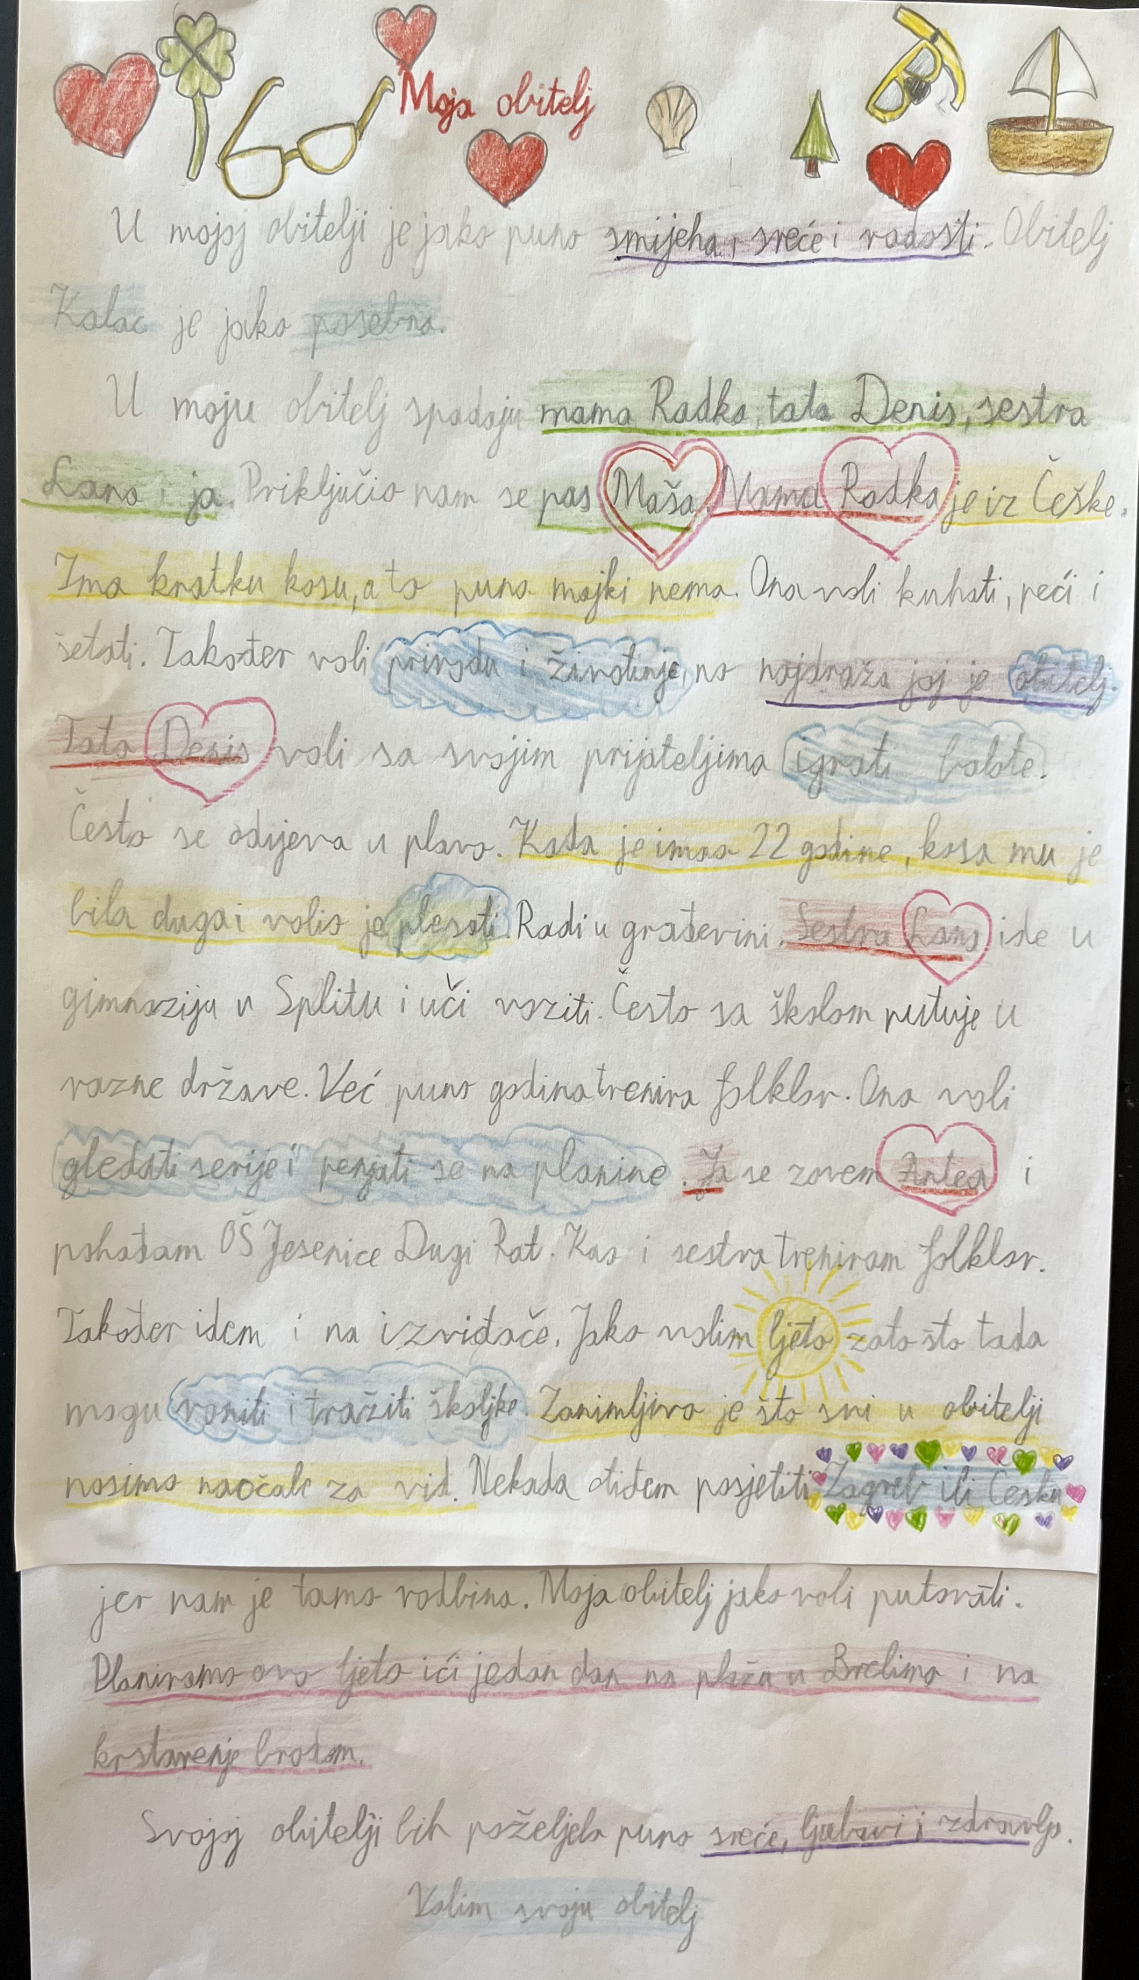 Moja obitelj
U mojoj obitelji je jako puno smijeha, sreće i radosti. Obitelj
Kalac je jako posebna.
U moju obitelj spadaju mama Radka, tata Denis, sestra
Lana i ja. Priključio nam se pas Maša. Mama Radka je iz Češke.
Ima kratku kosu, a to puno majki nema. Ona voli kuhati, peći i
šetati. Također voli prirodu i životinje, no najdraža joj je obitelj.
Tata Denis voli sa svojim prijateljima igrati balote.
Često se odijeva u plavo. Kada je imao 22 godine, kosa mu je
bila duga i volio je plesati. Radi u građevini. Sestra Lana ide u
gimnaziju u Splitu i uči voziti. Često sa školom putuje u
razne države. Već puno godina trenira folklor. Ona voli
gledati serije i penjati se na planine. Ja se zovem Antea i
pohađam OŠ Jesenice Dugi Rat. Kao i sestra treniram folklor.
Također idem i na izviđače. Jako volim ljeto zato što tada
mogu roniti i tražiti školjke. Zanimljivo je što svi u obitelji
nosimo naočale za vid. Nekada otiđem posjetiti Zagreb ili Česku
jer nam je tamo rodbina. Moja obitelj jako voli putovati.
Planiramo ovo ljeto ići jedan dan na plažu u Brelima i na
krstarenje brodom.
Svojoj obitelji bih poželjela puno sreće, ljubavi i zdravlja.
Volim svoju obitelj